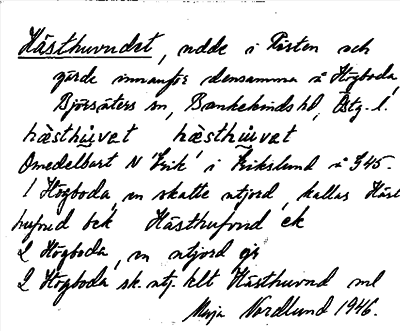 Hästhuvudet, udde i Risten och
gärde innanför densamma å Högboda,
Björsäters sn, Bankekinds hd, Östg. l.
hæsthu̯vet hæsthu̯vet
Omedelbart N "Erik" i Erikslund å G45.
1 Högboda, en skatte utjord, kallas Häst
hufvud bek Hästhufvud ek
2 Högboda, en utjord
2 Högboda sk. utj. klt Hästhuvud ml
Maja Nordlund 1946.